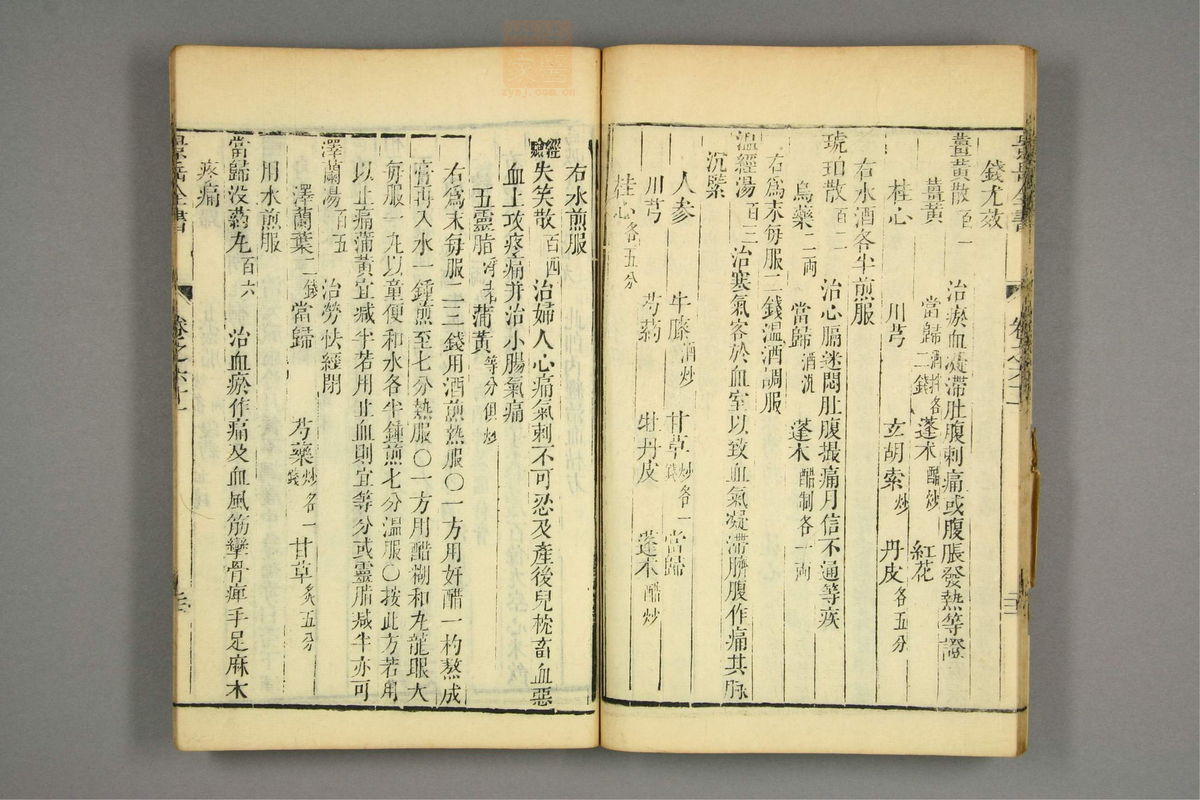 錢尤效
薑黃散百一 治瘀血凝滯肚腹刺痛或腹脹發熱等證
薑黃 當歸酒炒各二錢 蓬朮醋炒 紅花
桂心 川芎 玄胡索炒 丹皮各五分
右水酒各半煎服
琥珀散百二 治心膈迷悶肚腹撮痛月信不通等疾
烏藥二兩 當歸酒洗 蓬朮醋制各一兩
右爲末每服二錢温酒調服
温經湯百三 治寒氣客於血室以致血氣凝滯臍腹作痛其脉
沉緊
人參 牛膝酒炒 甘草炒各一錢 當歸
川芎 芍藥 牡丹皮 蓬朮醋炒
桂心各五分
右水煎服
經驗失笑散百四 治婦人心痛氣刺不可忍及產後兒枕畜血惡
血上攻疼痛并治小腸氣痛
五靈脂淨者 蒲黃等分俱炒
右爲末每服二三錢用酒煎熱服〇一方用好醋一杓熬成
膏再入水一鍾煎至七分熱服〇一方用醋糊和丸龍眼大
每服一丸以童便和水各半鍾煎七分温服〇按此方若用
以止痛蒲黃宜減半若用止血則宜等分或靈脂減半亦可
澤蘭湯百五 治勞怯經閉
澤蘭葉二錢 當歸 芍藥炒各一錢 甘草炙五分
用水煎服
當歸没藥丸百六 治血瘀作痛及血風筋攣骨痺手足麻木
疼痛
景岳全書 卷之六十一